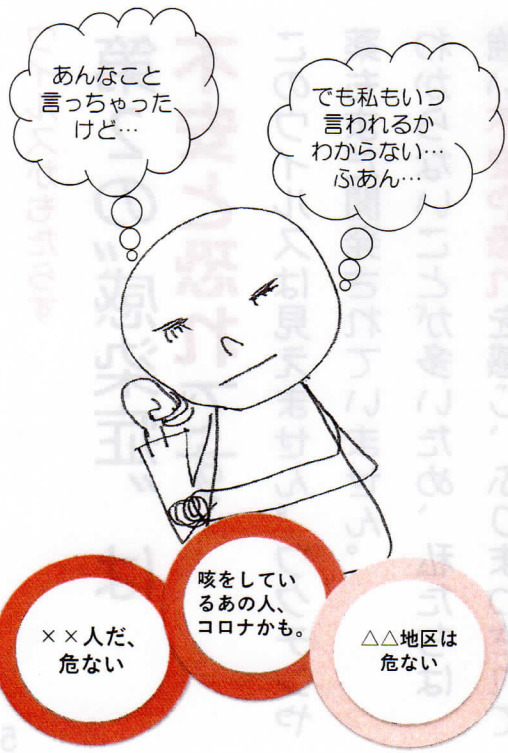 あんなこと
言っちゃった
けど…
でも私もいつ
言われるか
わからない…
ふあん…
咳をしてい
るあの人、
コロナかも。
××人だ、
危ない
△△地区は
危ない